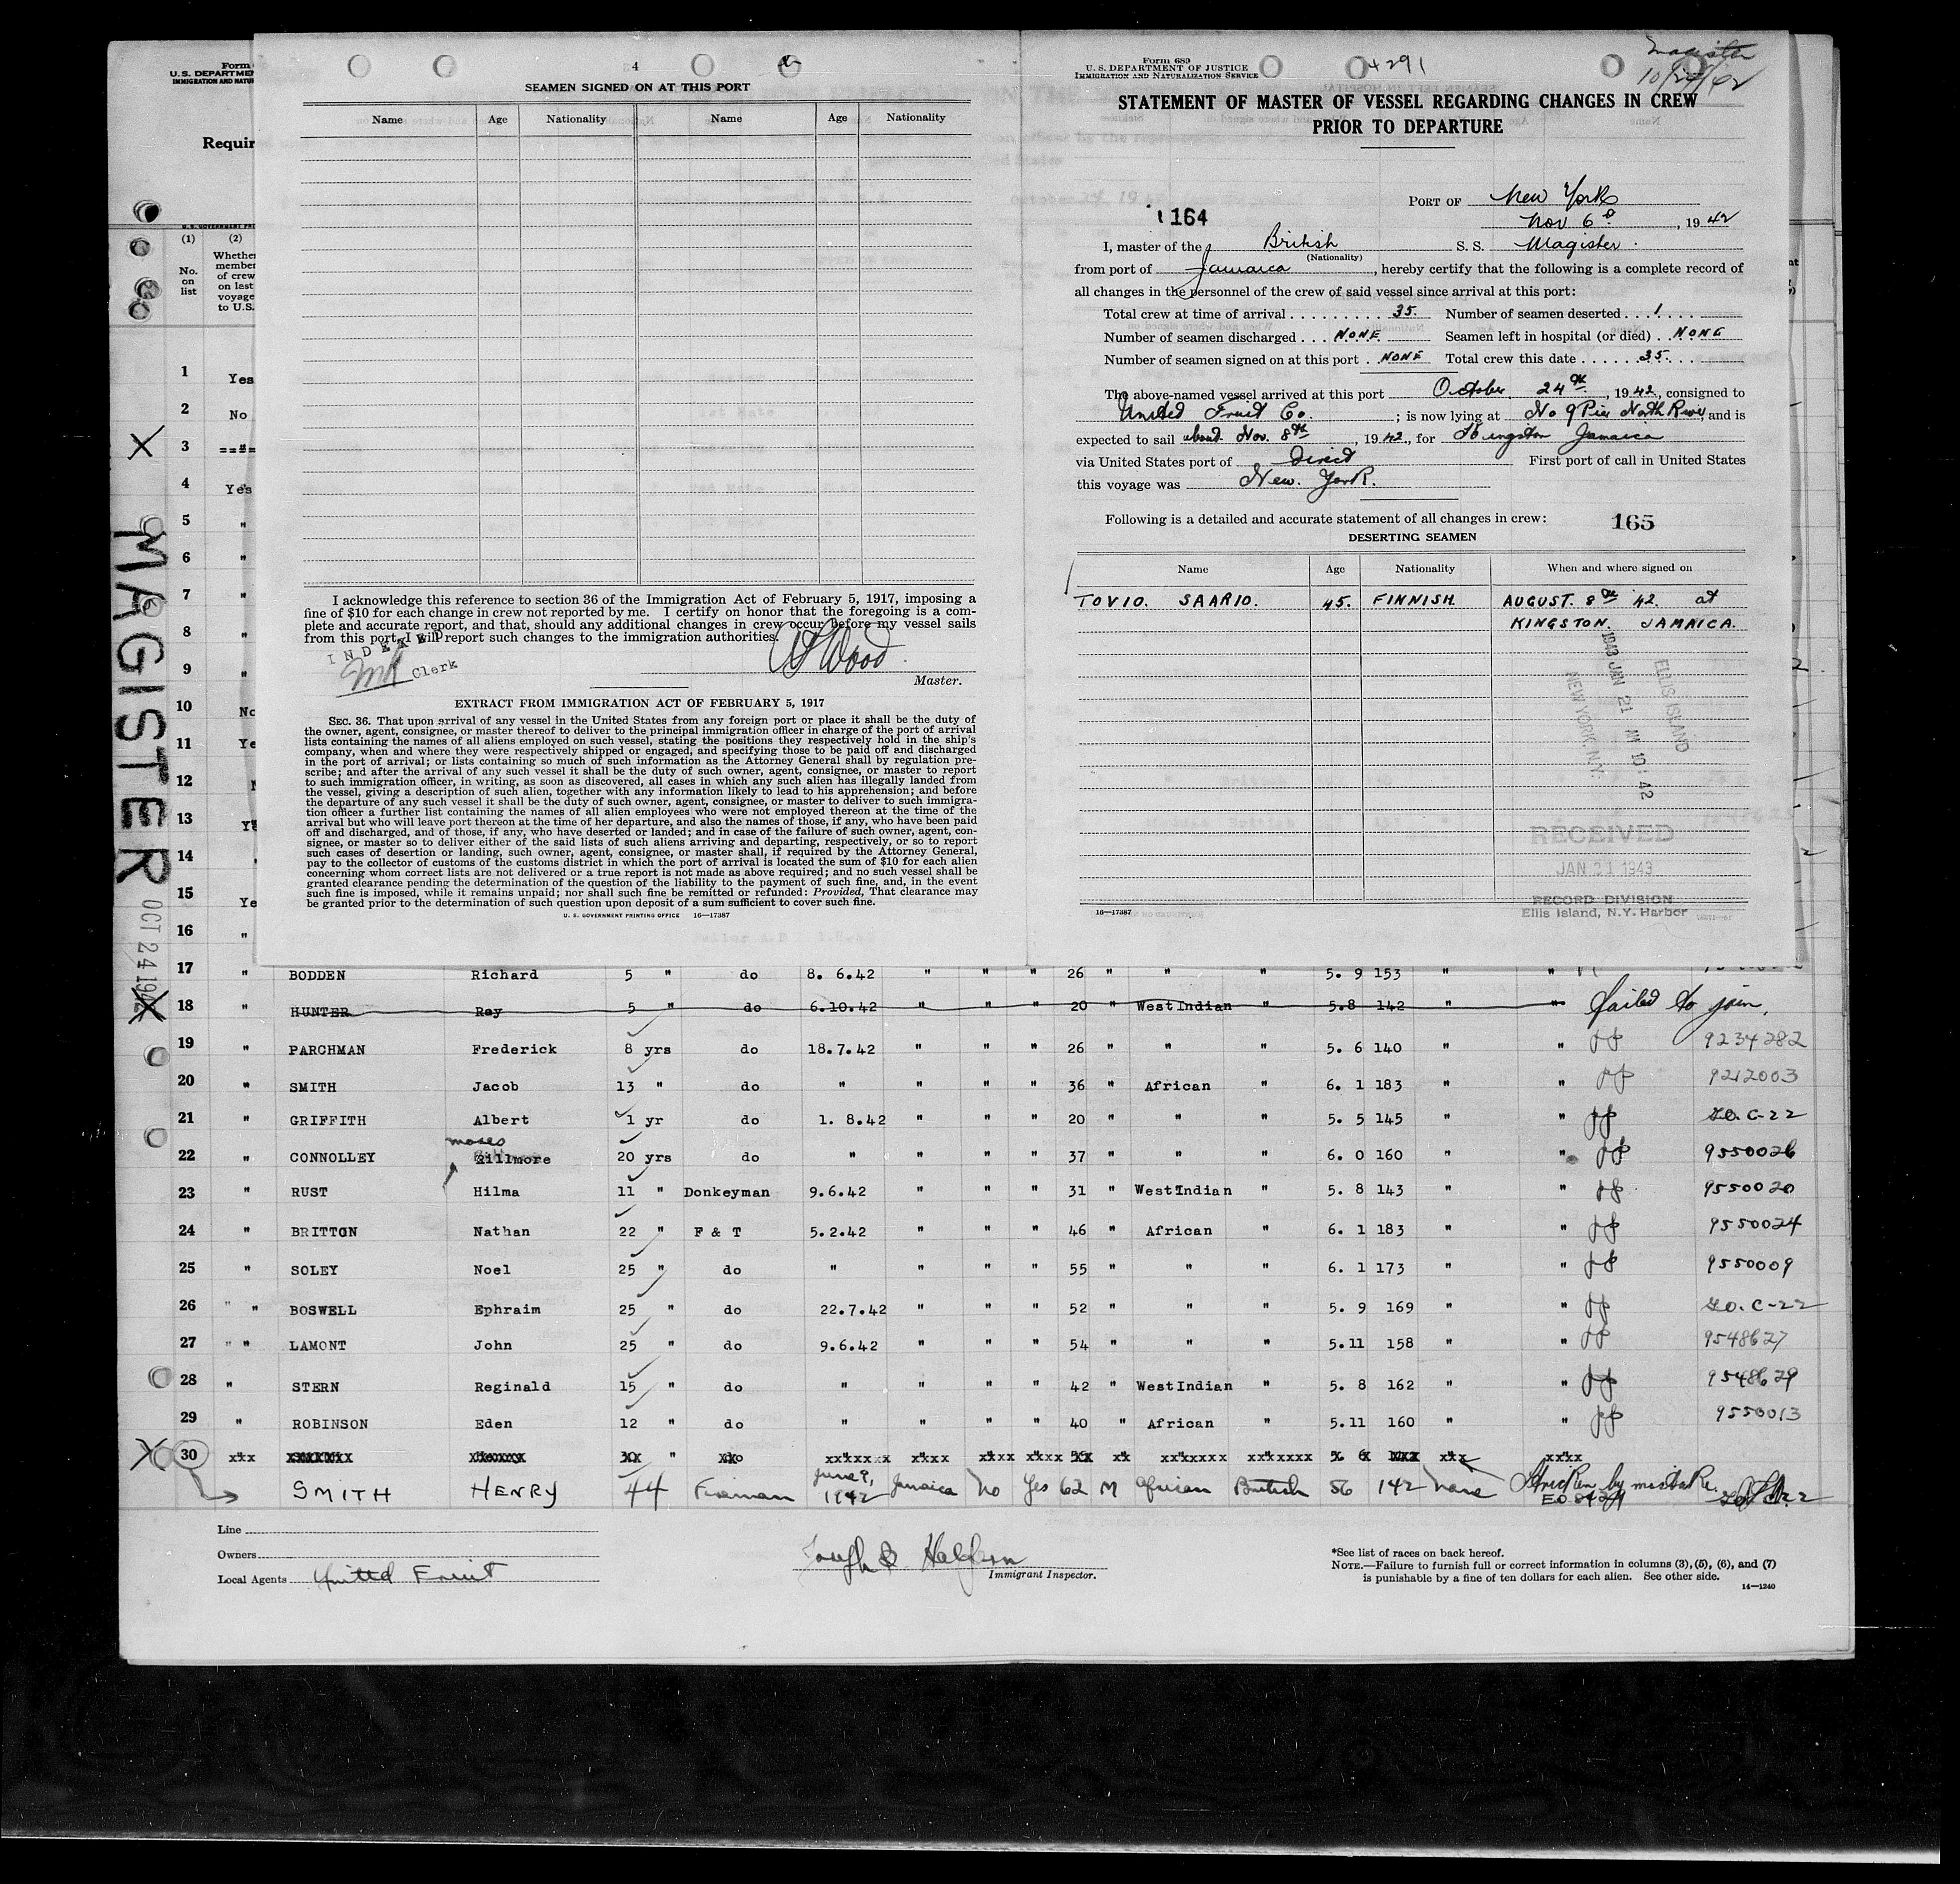 Form
U.S. DEPARTMEN
IMMIGRATION AND NATU
Requir
(1) (2)
No. on list
Whether member of crew on last voyage to U.S.
1 Yes
2 No
3 ==#=
4 Yes
5 "
6 "
7 "
8 "
9 "
10 No
11 Ye
12
13 Ye
14
15 Ye
16 "
MAGISTER
OCT 24 1942
4
SEAMEN SIGNED ON AT THIS PORT
Name Age Nationality Name Age Nationality
I acknowledge this reference to section 36 of the Immigration Act of February 5, 1917, imposing a
fine of $10 for each change in crew not reported by me. I certify on honor that the foregoing is a com-
plete and accurate report, and that, should any additional changes in crew occur before my vessel sails
from this port, I will report such changes to the immigration authorities.
INDEXED
Clerk
Wood
Master.
EXTRACT FROM IMMIGRATION ACT OF FEBRUARY 5, 1917
SEC. 36. That upon arrival of any vessel in the United States from any foreign port or place it shall be the duty of
the owner, agent, consignee, or master thereof to deliver to the principal immigration officer in charge of the port of arrival
lists containing the names of all aliens employed on such vessel, stating the positions they respectively hold in the ship's
company, when and where they were respectively shipped or engaged, and specifying those to be paid off and discharged
in the port of arrival; or lists containing so much of such information as the Attorney General shall by regulation pre-
scribe; and after the arrival of any such vessel it shall be the duty of such owner, agent, consignee, or master to report
to such immigration officer, in writing, as soon as discovered, all cases in which any such alien has illegally landed from
the vessel, giving a description of such alien, together with any information likely to lead to his apprehension; and before
the departure of any such vessel it shall be the duty of such owner, agent, consignee, or master to deliver to such immigra-
tion officer a further list containing the names of all alien employees who were not employed thereon at the time of the
arrival but who will leave port thereon at the time of her departure, and also the names of those, if any, who have been paid
off and discharged, and of those, if any, who have deserted or landed; and in case of the failure of such owner, agent, con-
signee, or master so to deliver either of the said lists of such aliens arriving and departing, respectively, or so to report
such cases of desertion or landing, such owner, agent, consignee, or master shall, if required by the Attorney General,
pay to the collector of customs of the customs district in which the port of arrival is located the sum of $10 for each alien
concerning whom correct lists are not delivered or a true report is not made as above required; and no such vessel shall be
granted clearance pending the determination of the question of the liability to the payment of such fine, and, in the event
such fine is imposed, while it remains unpaid; nor shall such fine be remitted or refunded: Provided, That clearance may
be granted prior to the determination of such question upon deposit of a sum sufficient to cover such fine.
U. S. GOVERNMENT PRINTING OFFICE 16—17387
Form 689
U. S. DEPARTMENT OF JUSTICE
IMMIGRATION AND NATURALIZATION SERVICE
4291
Magister
10/24/42
STATEMENT OF MASTER OF VESSEL REGARDING CHANGES IN CREW
PRIOR TO DEPARTURE
PORT OF New York
164
Nov 6th, 1942
I, master of the British S. S. Magister.
(Nationality)
from port of Jamaica, hereby certify that the following is a complete record of
all changes in the personnel of the crew of said vessel since arrival at this port:
Total crew at time of arrival 35. Number of seamen deserted 1
Number of seamen discharged NONE Seamen left in hospital (or died) NONE
Number of seamen signed on at this port NONE Total crew this date 35.
The above-named vessel arrived at this port October 24th, 1942, consigned to
United Fruit Co.; is now lying at No 9 Pier North River, and is
expected to sail about Nov. 8th, 1942, for Kingston Jamaica
via United States port of Direct First port of call in United States
this voyage was New York.
Following is a detailed and accurate statement of all changes in crew: 165
DESERTING SEAMEN
Name Age Nationality When and where signed on
TOVIO. SAARIO. 45. FINNISH. AUGUST. 8th '42. at
KINGSTON. JAMAICA.
1943 JAN 21 AM 10:42
ELLIS ISLAND
NEW YORK, N.Y.
RECEIVED
JAN 21 1943
RECORD DIVISION
Ellis Island, N.Y. Harbor
16—17387
17 " BODDEN Richard 5 " do 8. 6.42 " " " 26 " " " 5. 9 153 " "
18 " HUNTER Roy 5 " do 6.10.42 " " " 20 " WestIndian " 5.8 142 " " failed to join.
19 " PARCHMAN Frederick 8 yrs do 18.7.42 " " " 26 " " " 5. 6 140 " " 9234282
20 " SMITH Jacob 13 " do " " " " 36 " African " 6. 1 183 " " 9212003
21 " GRIFFITH Albert 1 yr do 1. 8.42 " " " 20 " " " 5. 5 145 " " C-22
moses
22 " CONNOLLEY Zillmore 20 yrs do " " " " 37 " " " 6. 0 160 " " 9550026
23 " RUST Hilma 11 " Donkeyman 9.6.42 " " " 31 " WestIndian " 5. 8 143 " " 9550020
24 " BRITTON Nathan 22 " F & T 5.2.42 " " " 46 " African " 6. 1 183 " " 9550024
25 " SOLEY Noel 25 " do " " " " 55 " " " 6. 1 173 " " 9550009
26 " BOSWELL Ephraim 25 " do 22.7.42 " " " 52 " " " 5. 9 169 " " C-22
27 " LAMONT John 25 " do 9.6.42 " " " 54 " " " 5.11 158 " " 9548627
28 " STERN Reginald 15 " do " " " " 42 " WestIndian " 5. 8 162 " " 9548629
29 " ROBINSON Eden 12 " do " " " " 40 " African " 5.11 160 " " 9550013
30
SMITH HENRY 44 Fireman June 9, 1942 Jamaica No Yes 62 M African British 56 142 None Stricken by mistake.
Line
Owners
Local Agents United Fruit
Immigrant Inspector.
*See list of races on back hereof.
NOTE.—Failure to furnish full or correct information in columns (3), (5), (6), and (7)
is punishable by a fine of ten dollars for each alien. See other side.
14—1240